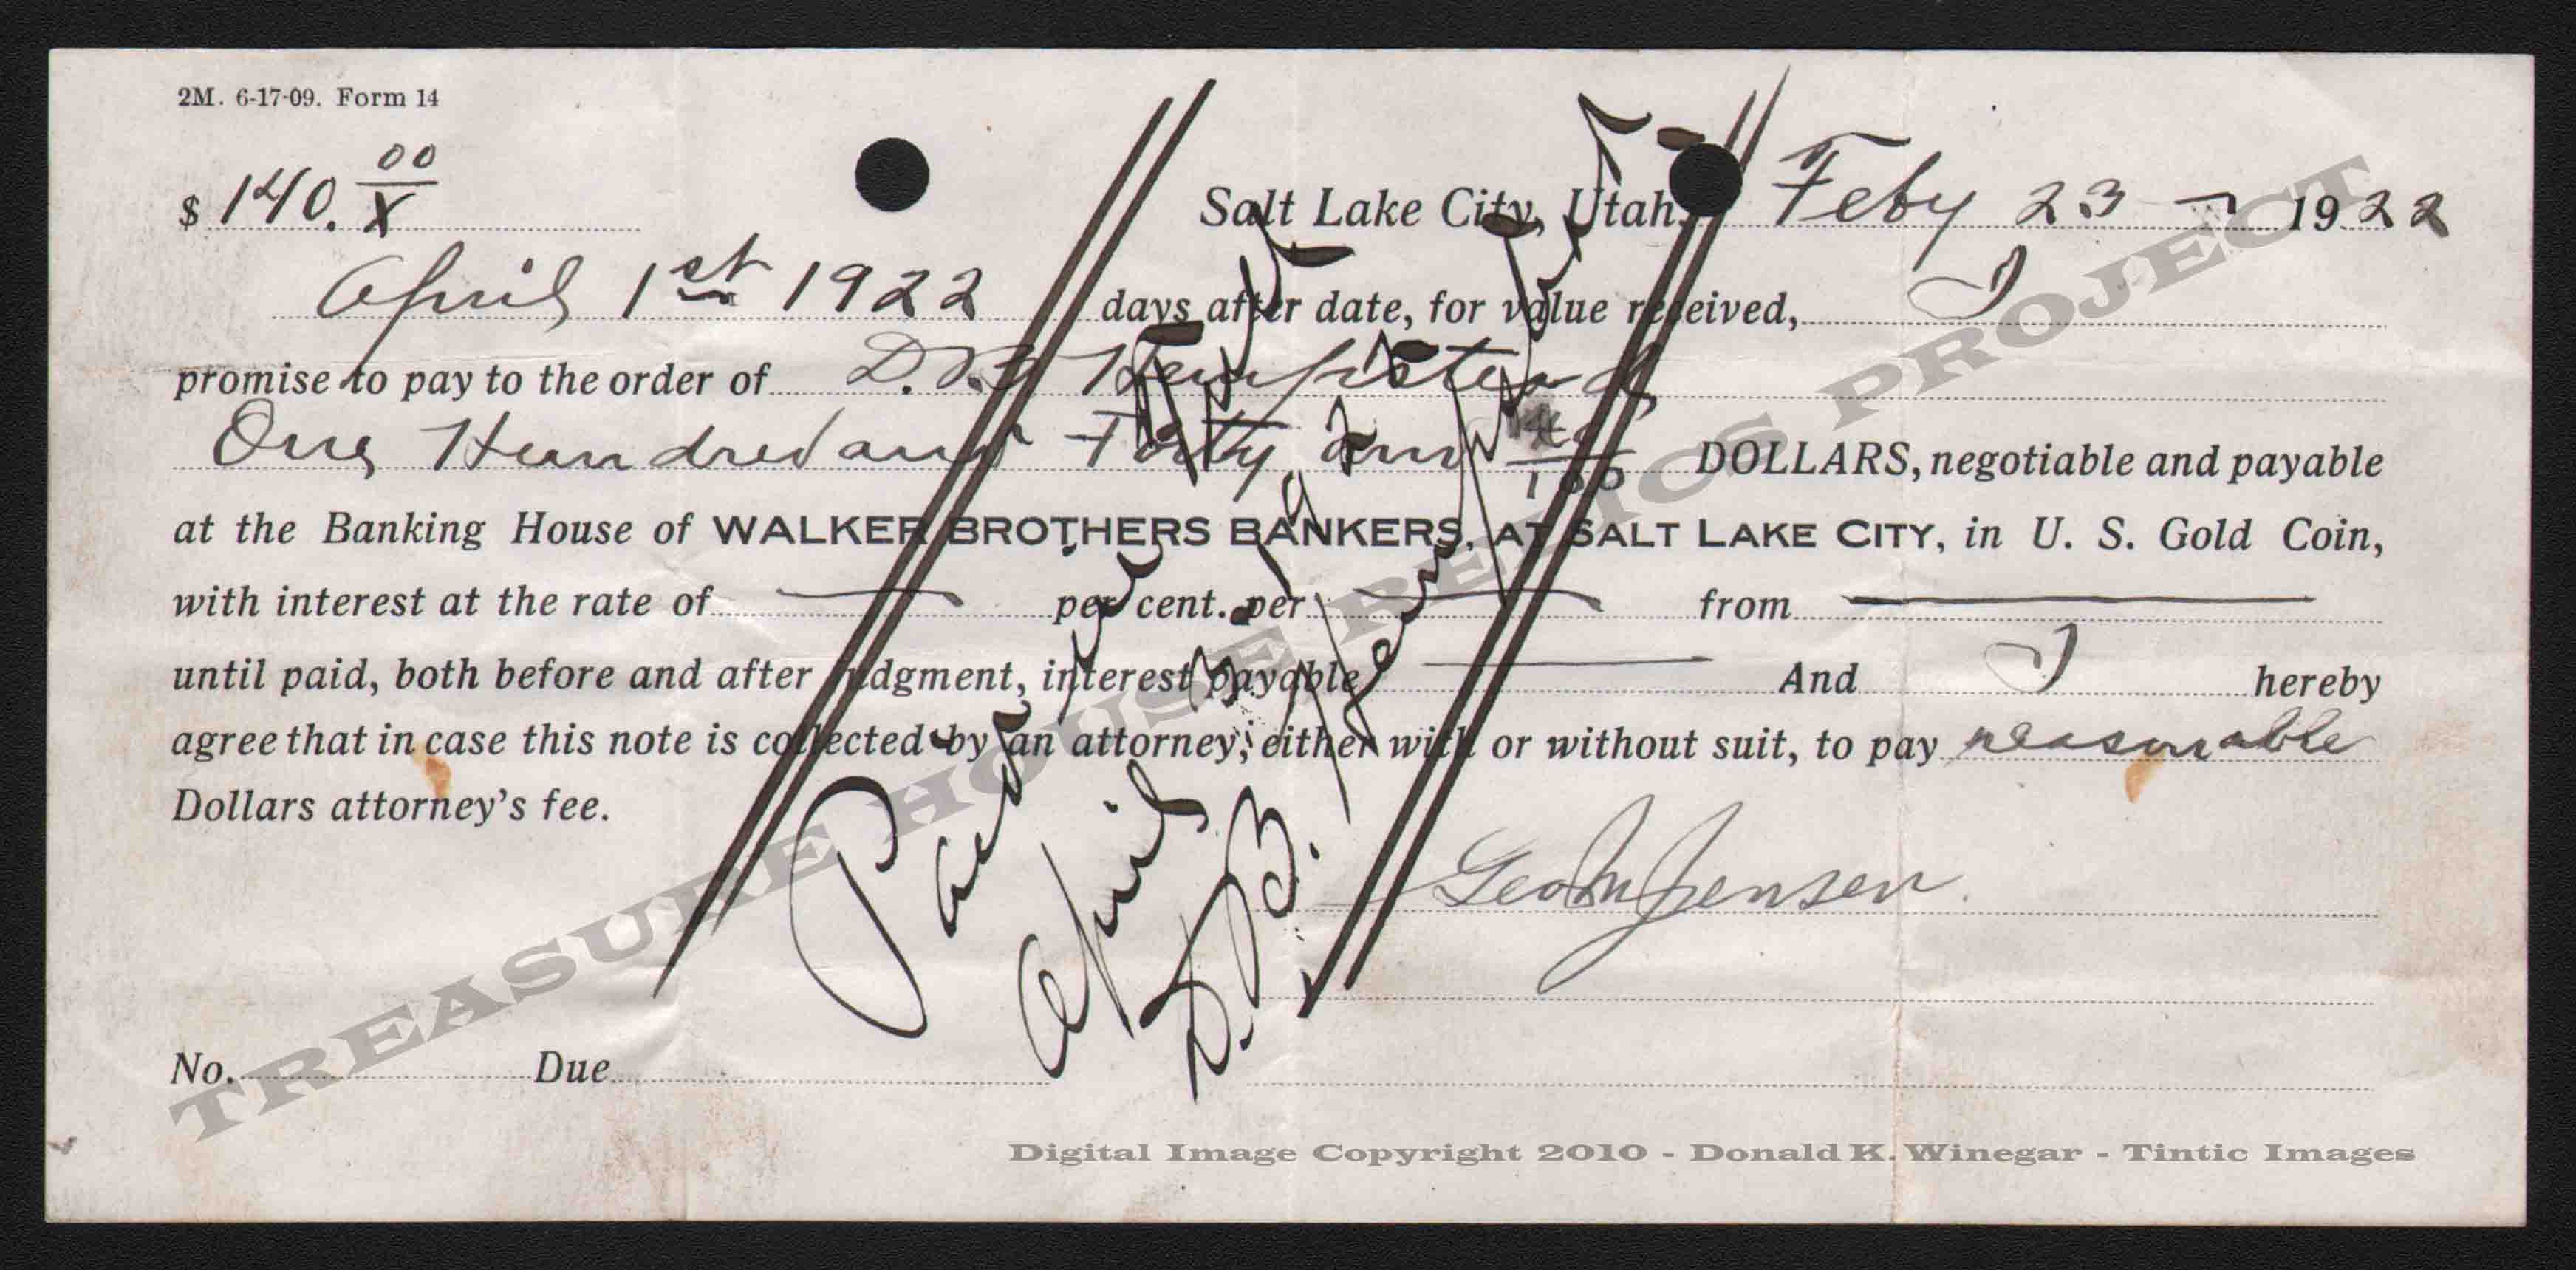 2M. 6-17-09. Form 14
$ 140. 00/X
Salt Lake City, Utah, Feby 23 1922
April 1st 1922 days after date, for value received, I
promise to pay to the order of D.B. Hempstead
One Hundred and Forty and /100 DOLLARS, negotiable and payable
at the Banking House of WALKER BROTHERS BANKERS, AT SALT LAKE CITY, in U. S. Gold Coin,
with interest at the rate of per cent. per from
until paid, both before and after judgment, interest payable And I hereby
agree that in case this note is collected by an attorney, either with or without suit, to pay reasonable
Dollars attorney's fee.
Geo M Jensen
No. Due
Paid in
April
D. B. Hempstead
TREASURE HOUSE RELICS PROJECT
Digital Image Copyright 2010 - Donald K. Winegar - Tintic Images